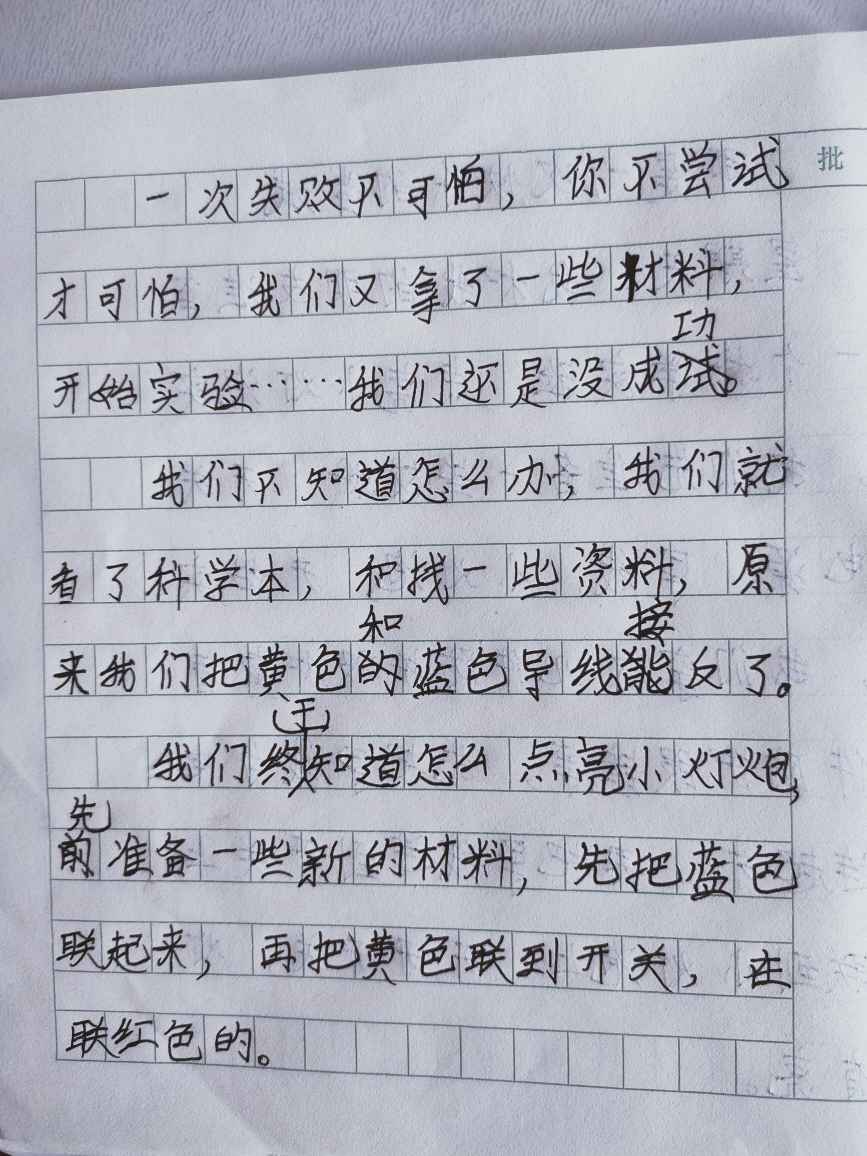 批
一次失败不可怕，你不尝试
才可怕，我们又拿了一些材料，
功
开始实验……我们还是没成试。
我们不知道怎么办，我们就
看了科学本，和找一些资料，原
和 接
来我们把黄色的蓝色导线能反了。
于
我们终知道怎么点亮小灯炮，
先
前准备一些新的材料，先把蓝色
联起来，再把黄色联到开关，在
联红色的。